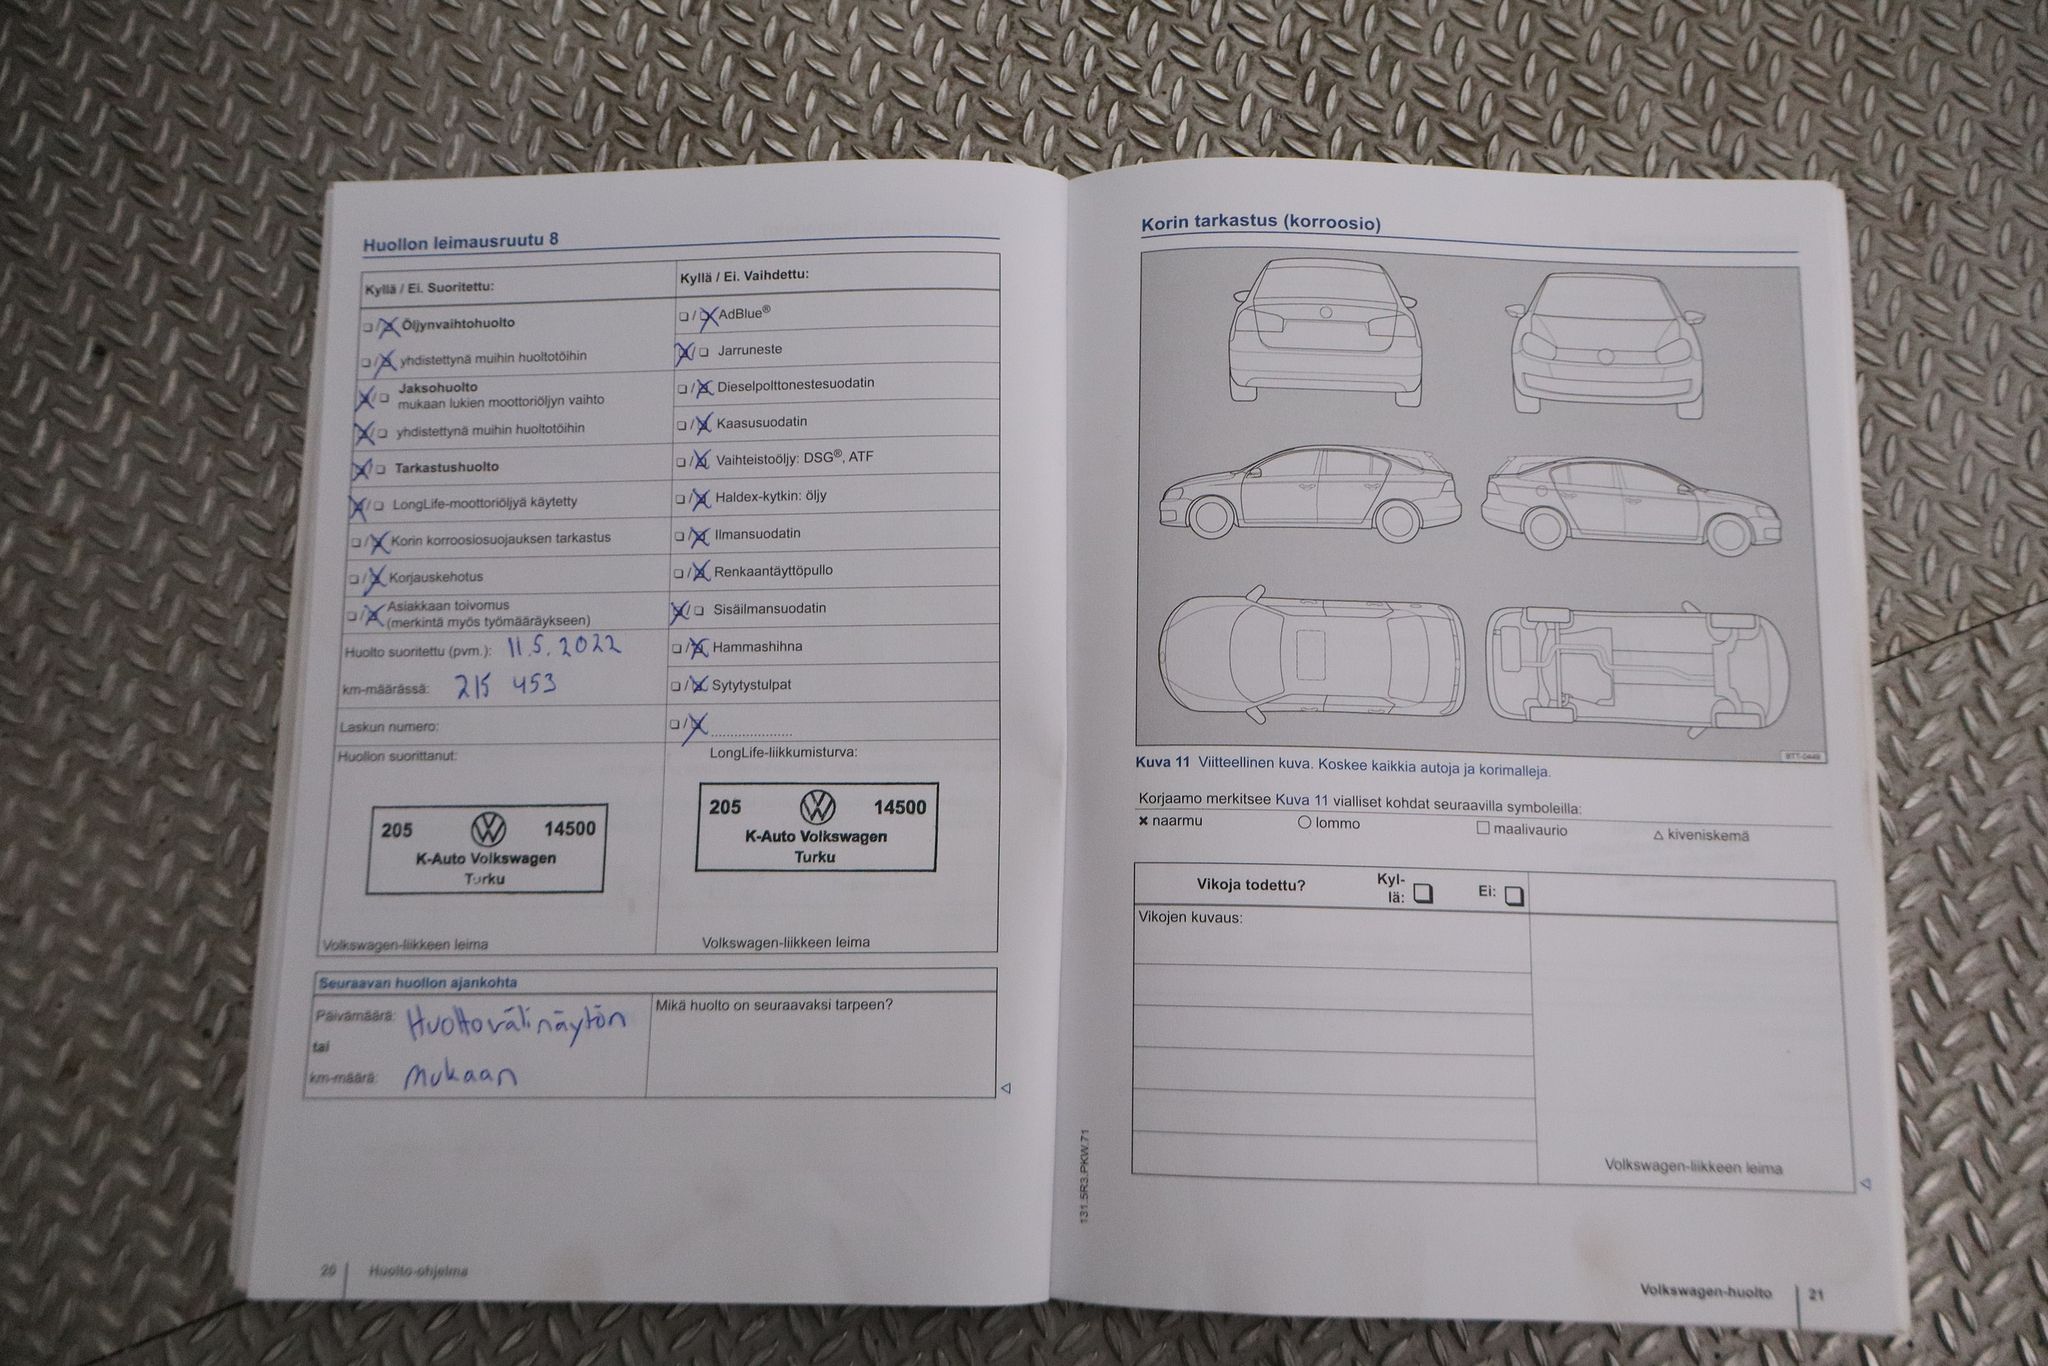 Huollon leimausruutu 8
Kyllä / Ei. Suoritettu:
Öljynvaihtohuolto
yhdistettynä muihin huoltotöihin
Jaksohuolto
mukaan lukien moottoriöljyn vaihto
yhdistettynä muihin huoltotöihin
Tarkastushuolto
LongLife-moottoriöljyä käytetty
Korin korroosiosuojauksen tarkastus
Korjauskehotus
Asiakkaan toivomus
(merkintä myös työmääräykseen)
Huolto suoritettu (pvm.): 11.5.2022
km-määrässä: 215 453
Laskun numero:
Huollon suorittanut:
205 14500
K-Auto Volkswagen
Turku
Volkswagen-liikkeen leima
Kyllä / Ei. Vaihdettu:
AdBlue®
Jarruneste
Dieselpolttonestesuodatin
Kaasusuodatin
Vaihteistoöljy: DSG®, ATF
Haldex-kytkin: öljy
Ilmansuodatin
Renkaantäyttöpullo
Sisäilmansuodatin
Hammashihna
Sytytystulpat
LongLife-liikkumisturva:
205 14500
K-Auto Volkswagen
Turku
Volkswagen-liikkeen leima
Seuraavan huollon ajankohta
Päivämäärä: Huoltovälinäytön
tai
km-määrä: mukaan
Mikä huolto on seuraavaksi tarpeen?
20 Huolto-ohjelma
Korin tarkastus (korroosio)
BTT-0449
Kuva 11 Viitteellinen kuva. Koskee kaikkia autoja ja korimalleja.
Korjaamo merkitsee Kuva 11 vialliset kohdat seuraavilla symboleilla:
× naarmu ○ lommo □ maalivaurio △ kiveniskemä
Vikoja todettu? Kyl-
lä: Ei:
Vikojen kuvaus:
Volkswagen-liikkeen leima
131.5R3.PKW.71
Volkswagen-huolto 21